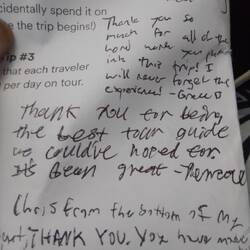 cidentally spend it on
e the trip begins!)
Thank you so
much for all of the
hard work you
this trip! I
will never forget the
experience! -Grace
ip #3
that each traveler
per day on tour.
Thank you for being
the best tour guide
we could've hoped for.
It's been great -
Chris From the bottom of my
THANK YOU. You have made